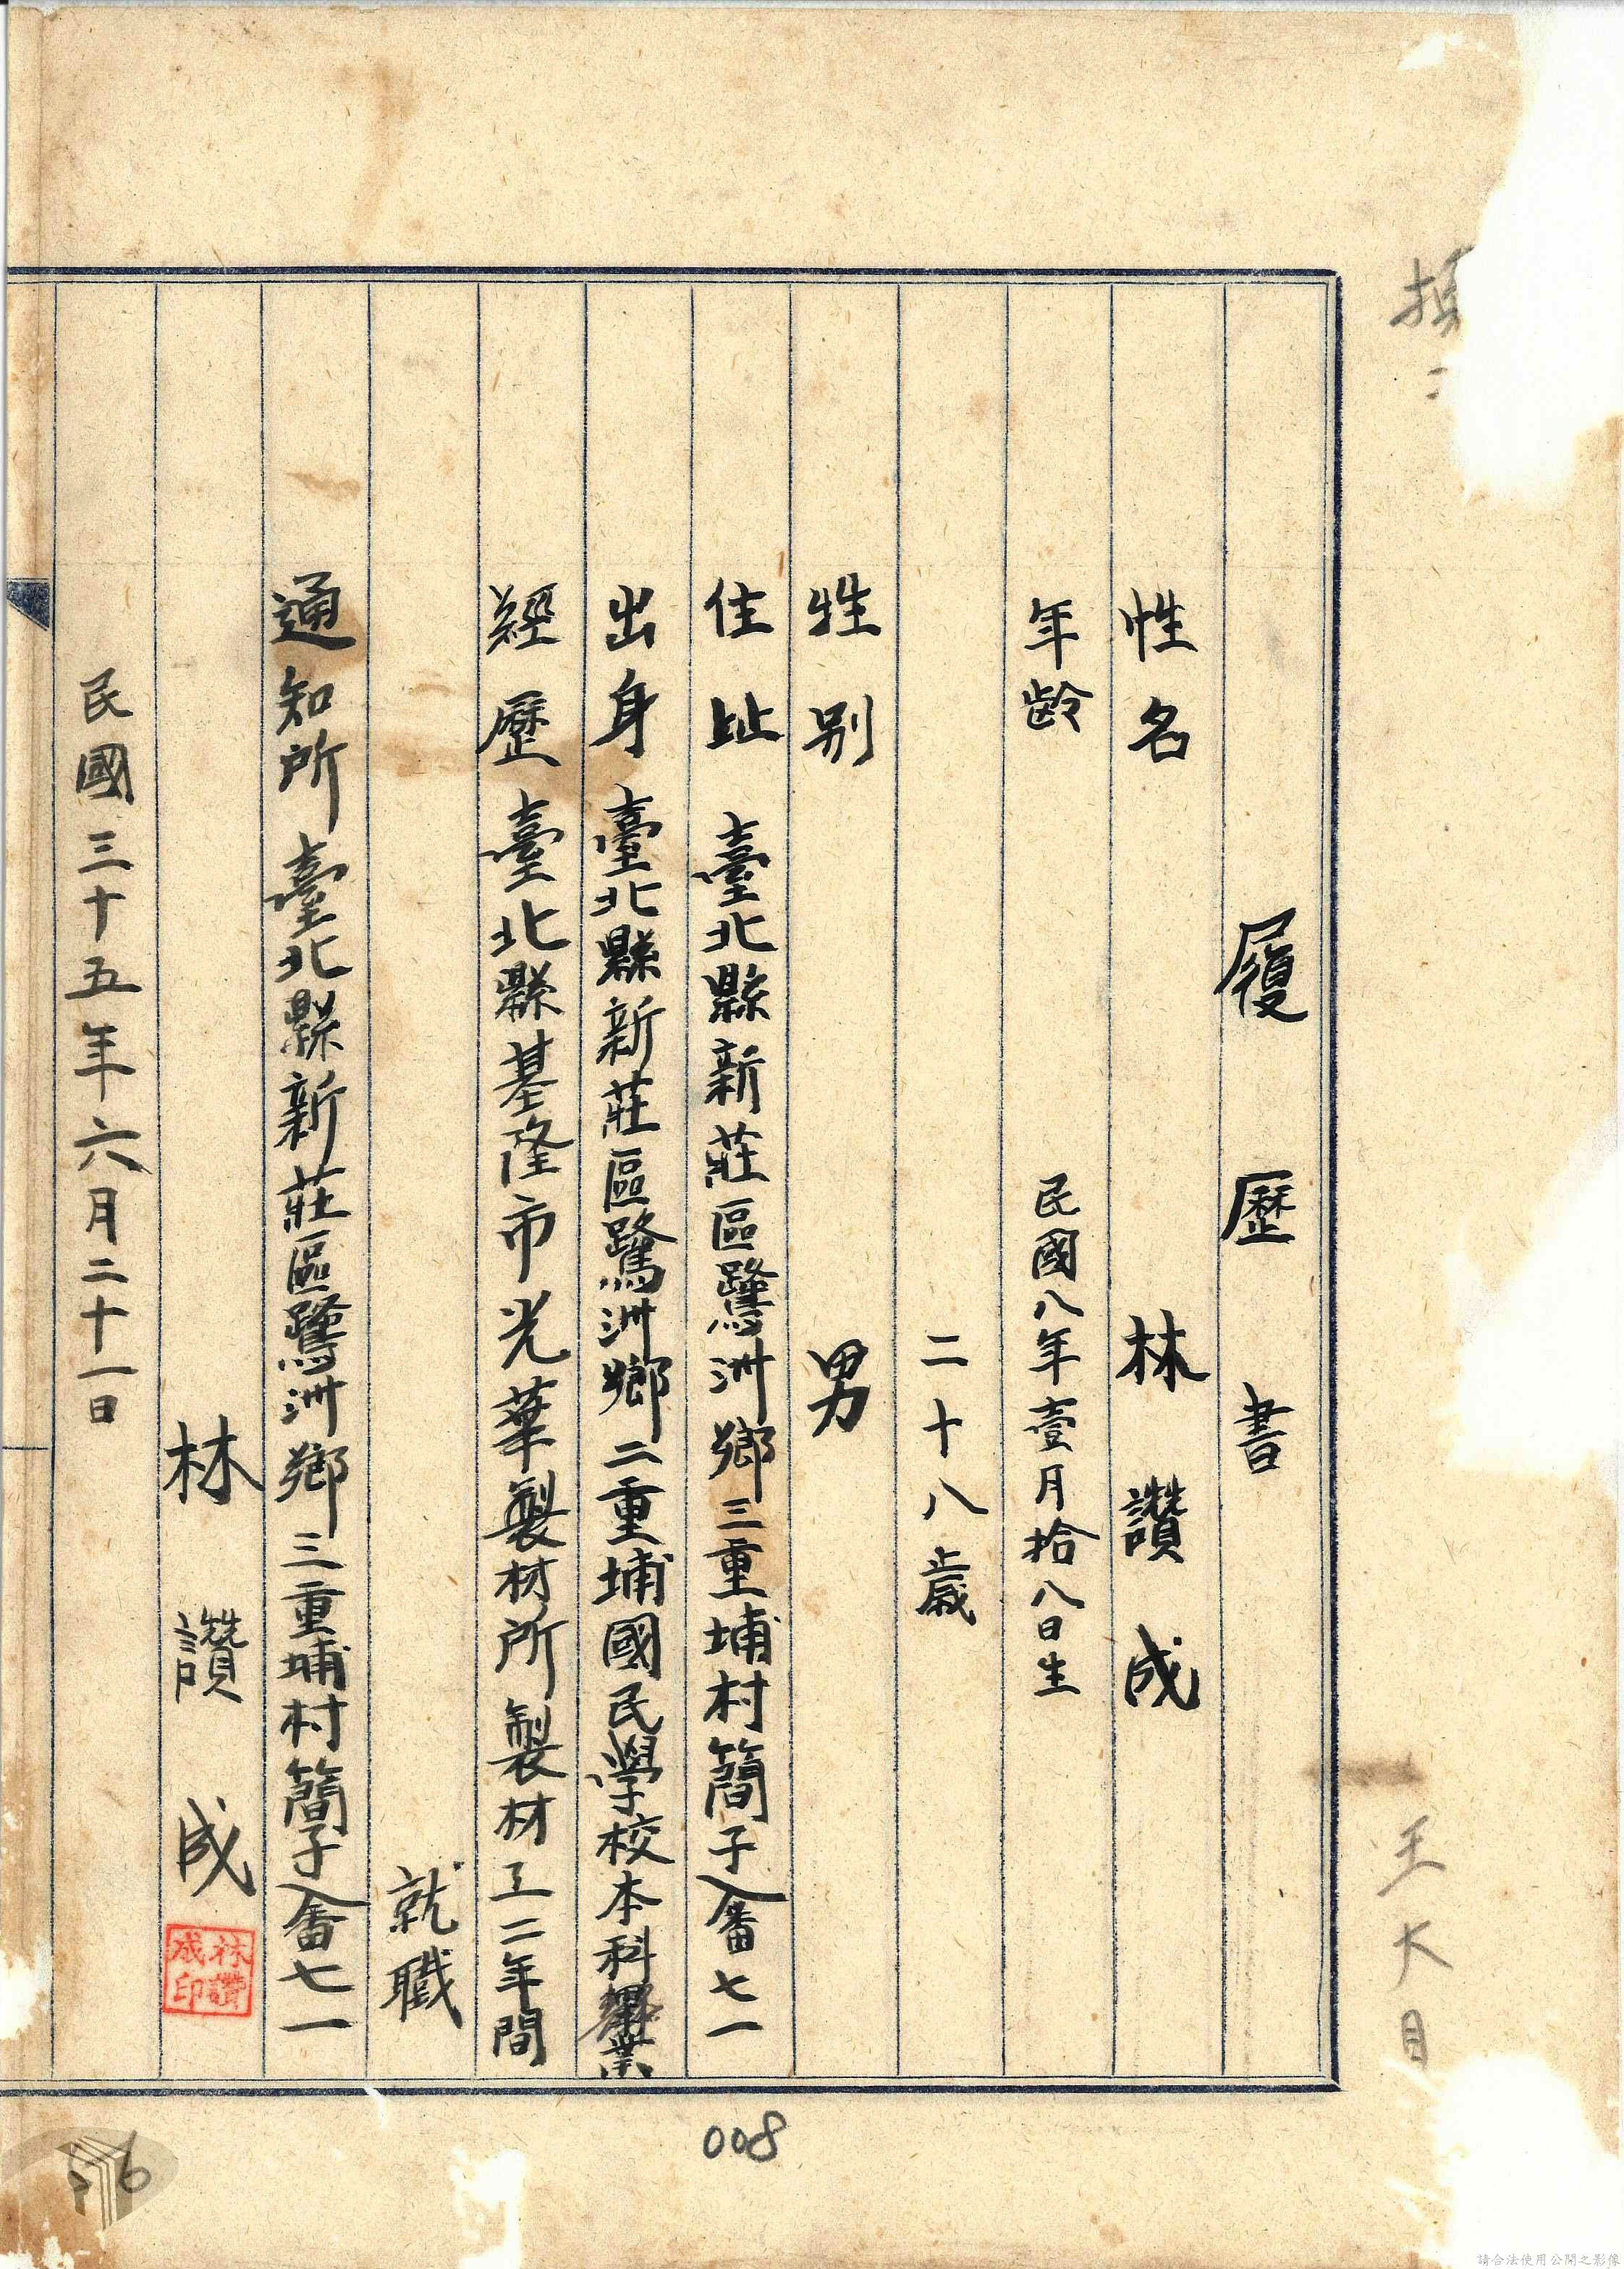 履歷書
性名 林讚成
年齡 民國八年壹月拾八日生
二十八歲
性別 男
住址 臺北縣新莊區鷺洲鄉三重埔村簡子畬七一
出身 臺北縣新莊區鷺洲鄉二重埔國民學校本科畢業
經歷 臺北縣基隆市光華製材所製材工二年間
就職
通知所 臺北縣新莊區鷺洲鄉三重埔村簡子畬七一
林讚成
林讚成印
民國三十五年六月二十一日
008
6
請合法使用公開之影像